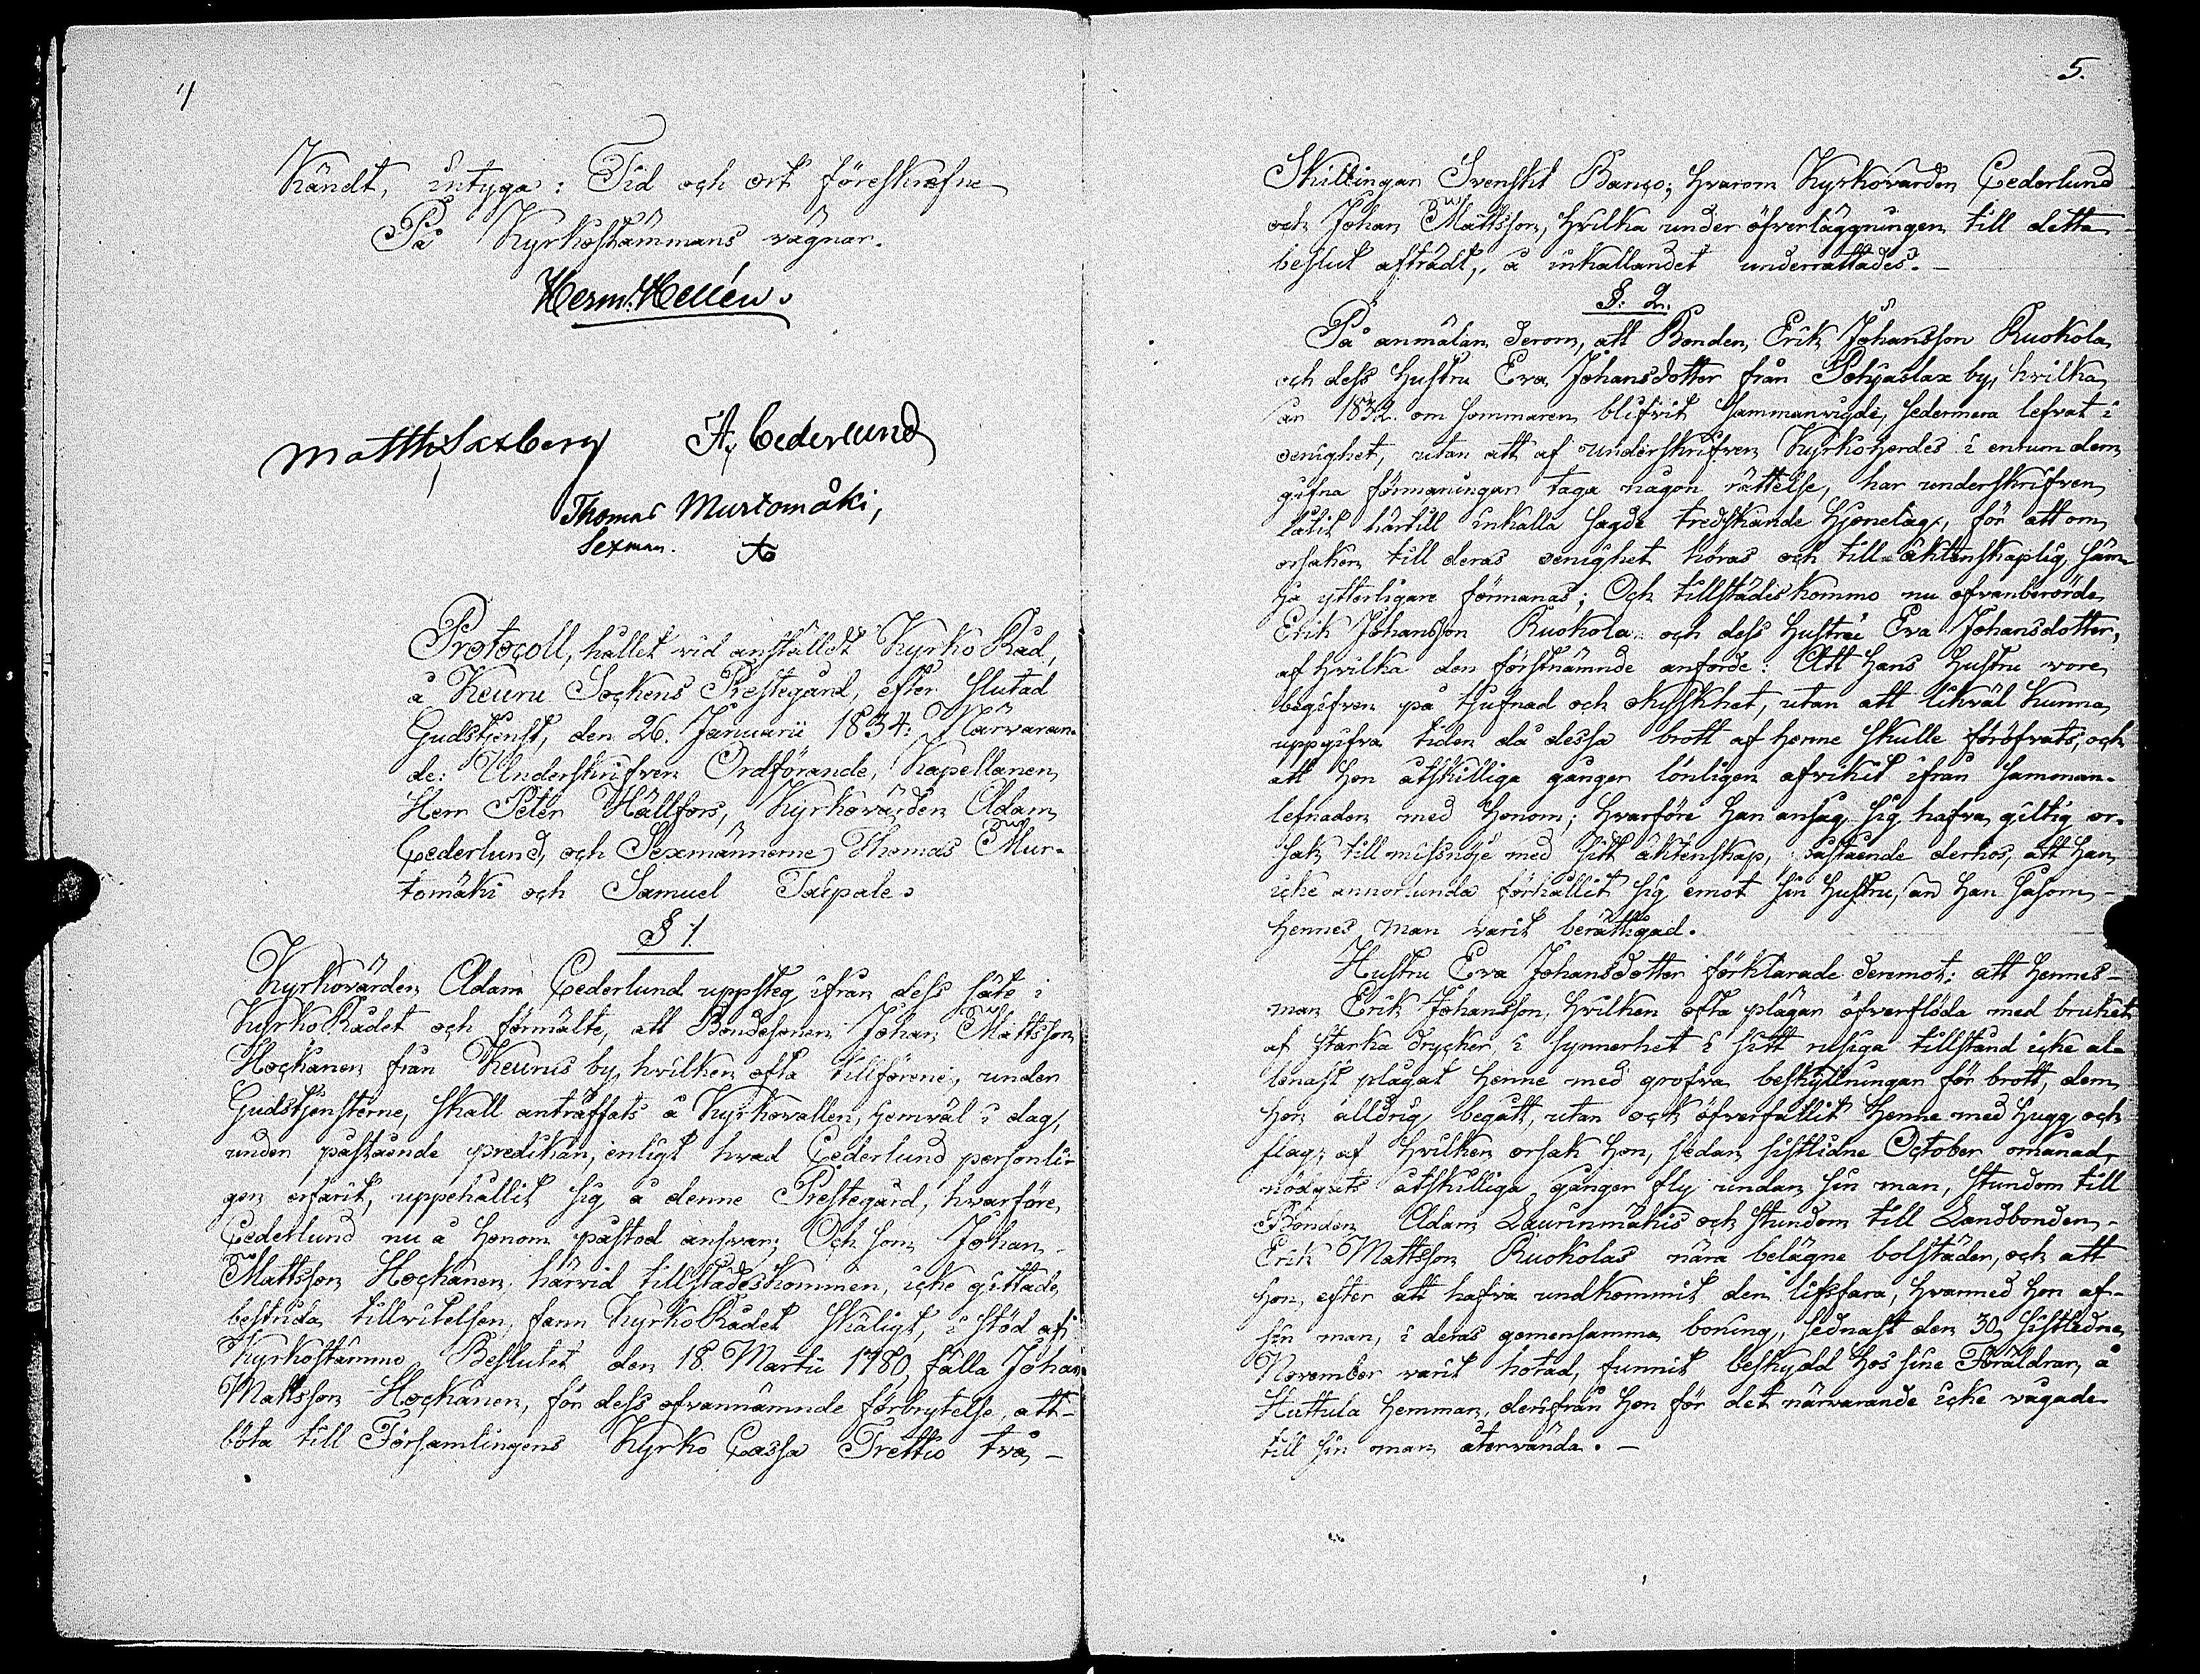 4
Kändt, intyga: Tid och ort föreskrefne
På Kyrkostämmans vägnar.
Herm. Hellén.
Matth Saxberg A, Cederlund
Thomas Murtomäki,
Sexman.
Protocoll, hållet vid anstäldt Kyrko Råd,
å Keuru Sockens Prestegård, efter slutad
Gudstjenst, den 26. Januarii 1834. Närvaran-
de: Underskrifven Ordförande, Kapellanen
Herr Peter Hällfors, Kyrkovärden Adam
Cederlund, och Sexmännerne Thomas Mur-
tomäki och Samuel Taipale.
§ 1.
Kyrkovärden Adam Cederlund uppsteg ifrån dess säte i
KyrkoRådet och förmälte, att Bondesonen Johan Mattsson
Hockanen från Keuruis by, hvilken ofta tillförene, under
Gudstjensterne, skall anträffats å Kyrkovallen, jemväl i dag,
under påstående predikan, enligt hvad Cederlund personli-
gen erfarit, uppehållit sig å denne Prestegård, hvarföre
Cederlund nu å honom påstod ansvar; Och som Johan
Mattsson Hockanen, härvid tillstädeskommen, icke gittade
bestrida tillvitelsen, fann KyrkoRådet skäligt, i stöd af
Kyrkostämmo Beslutet den 18. Martii 1780, fälla Johan
Mattsson Hockanen, för dess ofvannämnde förbrytelse, att
böta till Församlingens Kyrko Cassa Trettio två
5.
Skillingar Svenskt Banco; hvarom Kyrkovärden Cederlund
och Johan Mattsson, hvilka under öfverläggningen till detta
beslut afträdt, å inkallandet underrättades.
§. 2.
På anmälan derom, att Bonden, Erik Johansson Ruokola
och dess hustru Eva Johansdotter från Pohjaslax by, hvilka
år 1832 om sommaren blifvit sammanvigde, sedermera lefvat i
oenighet, utan att af underskrifven Kyrkoherdes i enrum dem
gifna förmaningar taga någon rättelse, har underskrifven
låtit härtill inkalla sagde tredskande Hjonelag, för att om
orsaken till deras oenighet höras och till äktenskaplig säm-
ja ytterligare förmanas; Och tillstädeskommo nu ofvanberörde
Erik Johansson Ruokola och dess hustru Eva Johansdotter,
af hvilka den förstnämnde anförde: Att hans hustru vore
begifven på tjufnad och okyskhet, utan att likväl kunna
uppgifva tiden då dessa brott af henne skulle föröfvats, och
att hon åtskilliga gånger lönligen afvikit ifrån samman-
lefnaden med honom; hvarföre han ansåg sig hafva giltig or-
sak till missnöje med sitt äktenskap, påstående derhos, att han
icke annorlunda förhållit sig emot sin hustru, än han såsom
hennes man varit berättigad.
Hustru Eva Johansdotter förklarade deremot: att hennes
man Erik Johansson, hvilken ofta plägar öfverflöda med bruket
af starka drycker, i synnerhet i sitt rusiga tillstånd icke al-
lenast plågat henne med grofva beskyllningar för brott, dem
hon alldrig begått, utan ock öfverfallit henne med hugg och
slag; af hvilken orsak hon, sedan sistlidne October månad,
nödgats åtskilliga gånger fly undan sin man, stundom till
Bonden Adam Laurinmäkis och stundom till Landbonden
Erik Mattsson Ruokolas nära belägne bolstäder, och att
hon, efter att hafva undkommit den lifsfara, hvarmed hon af
sin man, i deras gemensamma boning, sednast den 30 sistledne
November varit hotad, funnit beskydd hos sine Föräldrar, å
Huttula hemman, derifrån hon för det närvarande icke vågade
till sin man återvända.